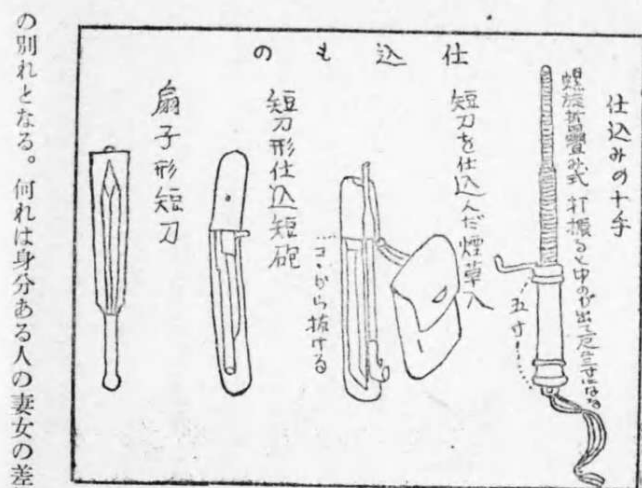 仕込もの
仕込みの十手
螺旋折疊み式 打振ると中のが出て
五寸
短刀を仕込んだ煙草入
コヽから抜ける
短刀形仕込短砲
扇子形短刀
の別れとなる。何れは身分ある人の妻女の差